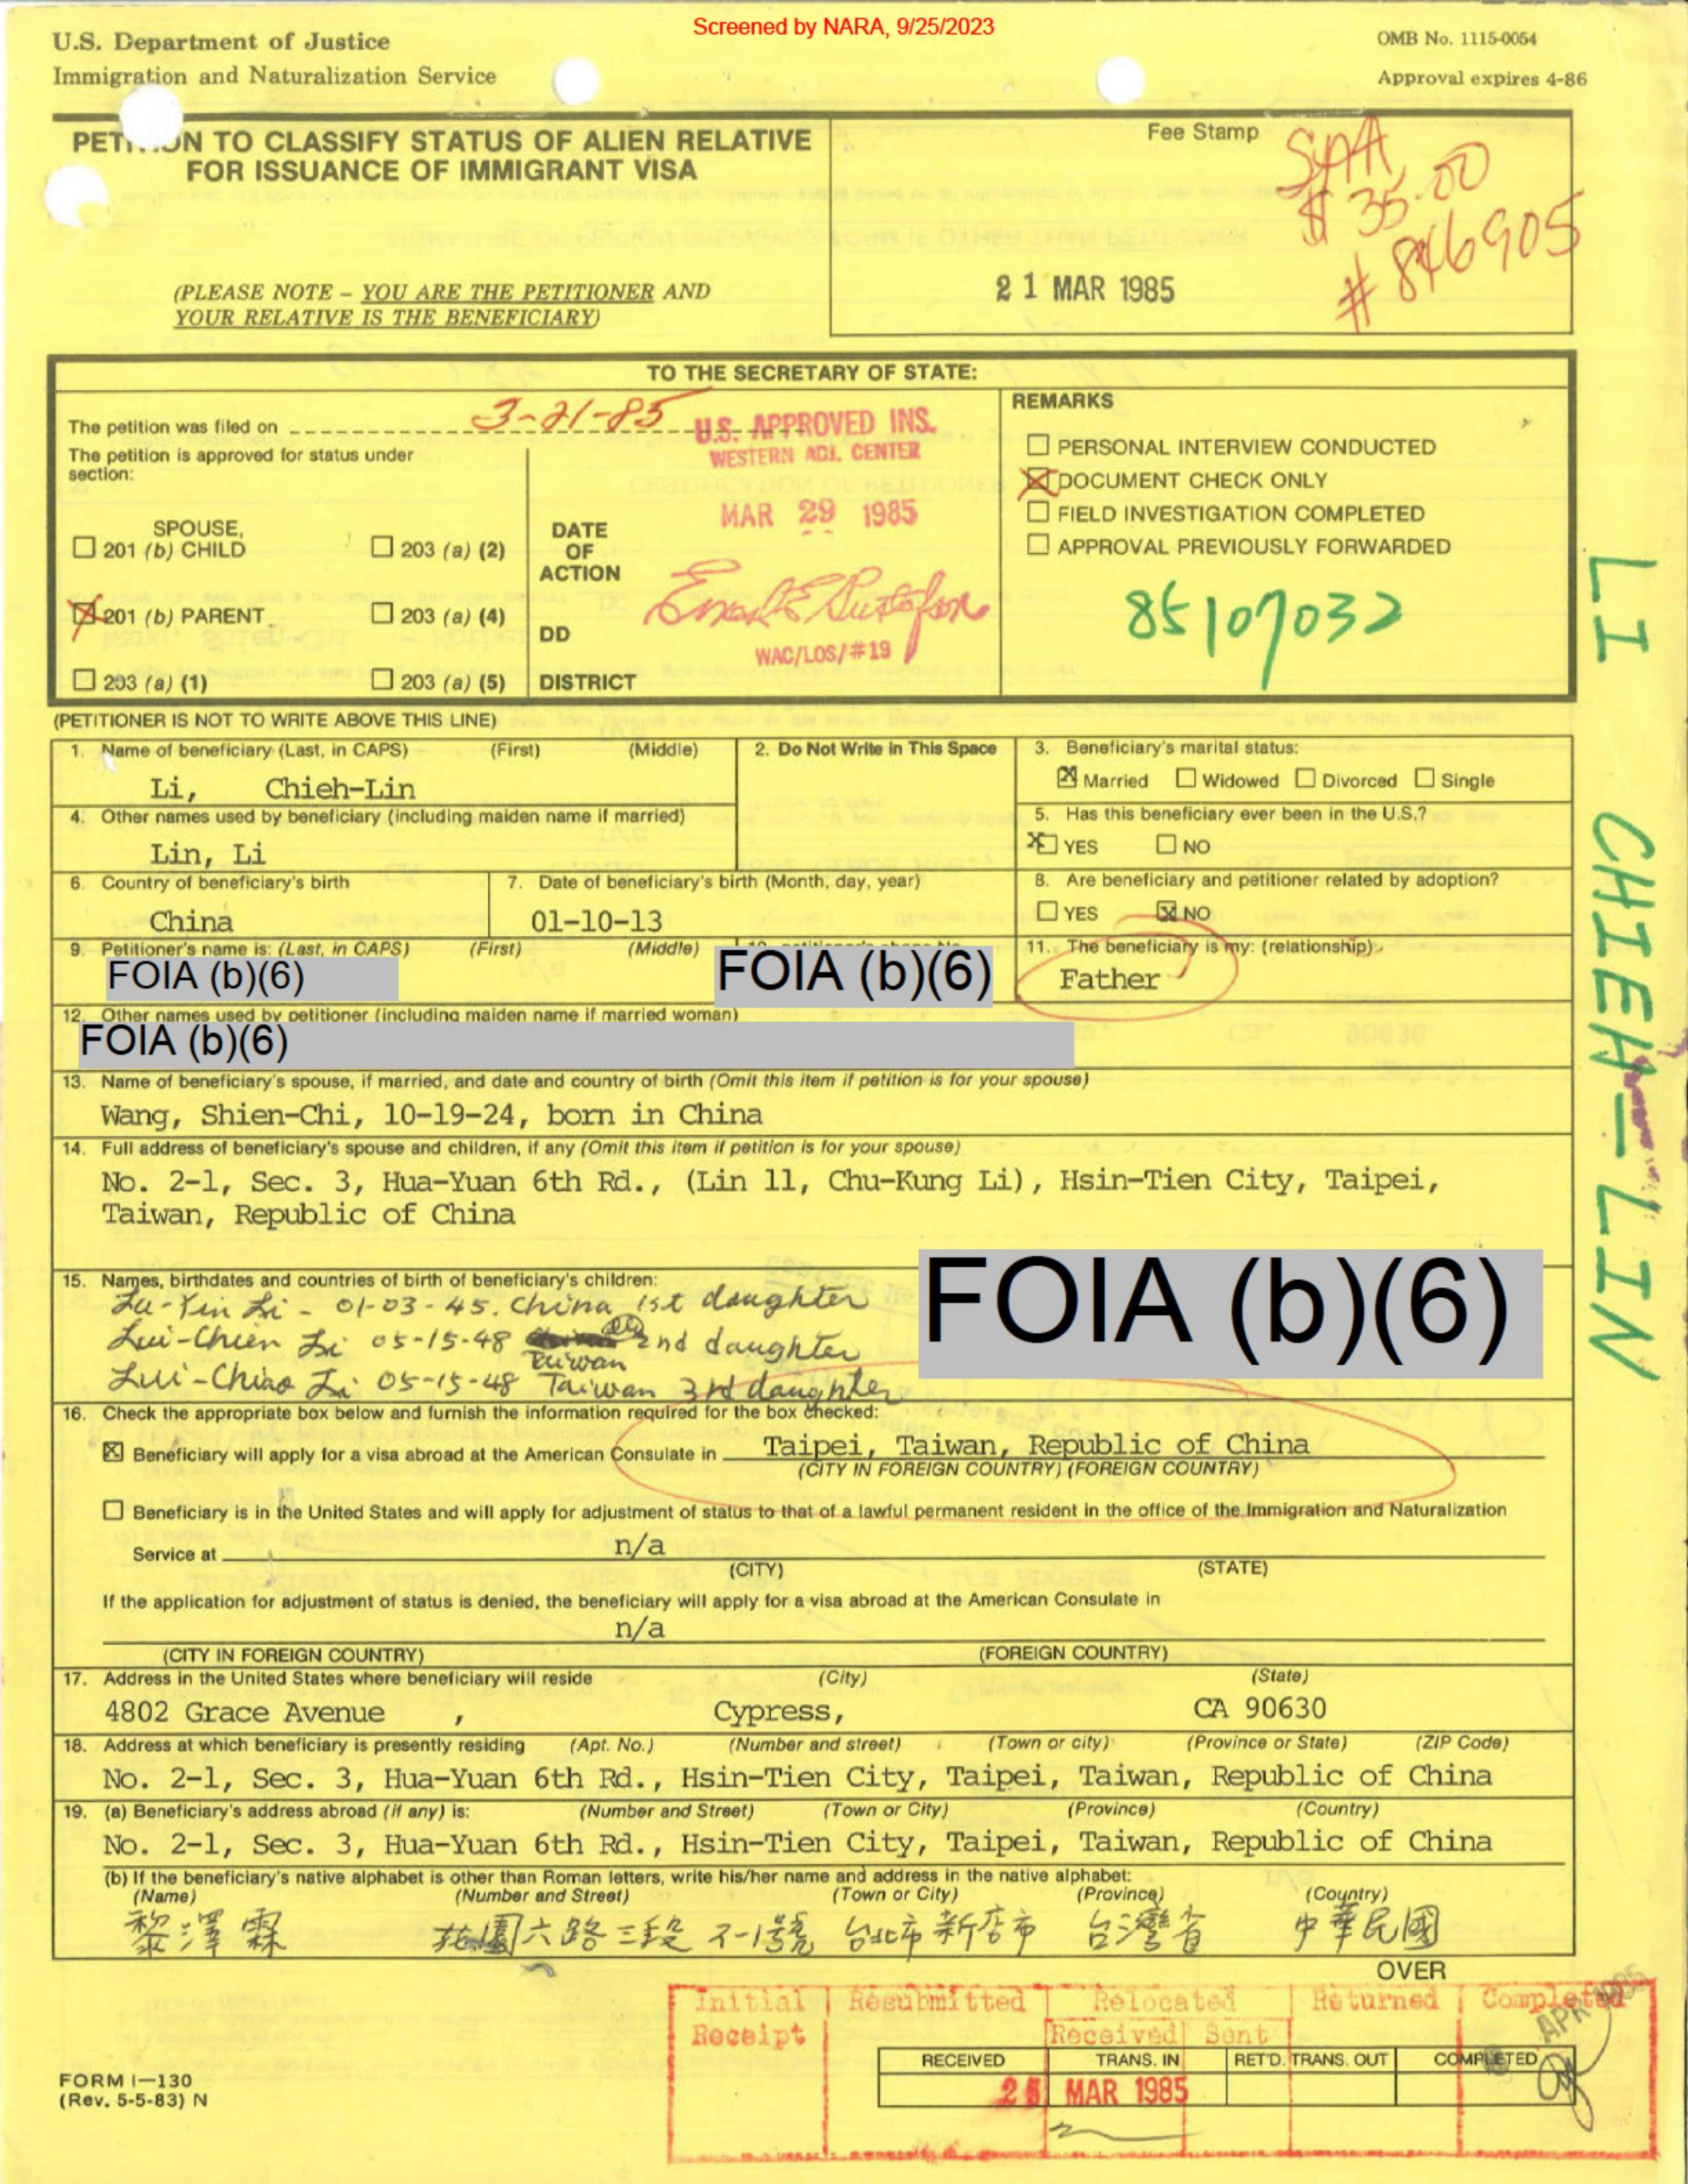 Screened by NARA, 9/25/2023
U.S. Department of Justice
Immigration and Naturalization Service
OMB No. 1115-0054
Approval expires 4-86
PETI ON TO CLASSIFY STATUS OF ALIEN RELATIVE
FOR ISSUANCE OF IMMIGRANT VISA
(PLEASE NOTE – YOU ARE THE PETITIONER AND
YOUR RELATIVE IS THE BENEFICIARY)
Fee Stamp
$ 35.00
# 846905
21 MAR 1985
TO THE SECRETARY OF STATE:
The petition was filed on 3-21-85
The petition is approved for status under
section:
SPOUSE,
201 (b) CHILD
203 (a) (2)
201 (b) PARENT
203 (a) (4)
203 (a) (1)
203 (a) (5)
DATE
OF
ACTION
DD
DISTRICT
U.S. APPROVED INS.
WESTERN ADJ. CENTER
MAR 29 1985
WAC/LOS/#19
REMARKS
PERSONAL INTERVIEW CONDUCTED
DOCUMENT CHECK ONLY
FIELD INVESTIGATION COMPLETED
APPROVAL PREVIOUSLY FORWARDED
85107032
LI CHIEH-LIN
(PETITIONER IS NOT TO WRITE ABOVE THIS LINE)
1. Name of beneficiary (Last, in CAPS) (First) (Middle)
Li, Chieh-Lin
2. Do Not Write in This Space
3. Beneficiary's marital status:
Married Widowed Divorced Single
4. Other names used by beneficiary (including maiden name if married)
Lin, Li
5. Has this beneficiary ever been in the U.S.?
YES NO
6. Country of beneficiary's birth
China
7. Date of beneficiary's birth (Month, day, year)
01-10-13
8. Are beneficiary and petitioner related by adoption?
YES NO
9. Petitioner's name is: (Last, in CAPS) (First) (Middle)
FOIA (b)(6)
FOIA (b)(6)
11. The beneficiary is my: (relationship)
Father
12. Other names used by petitioner (including maiden name if married woman)
FOIA (b)(6)
13. Name of beneficiary's spouse, if married, and date and country of birth (Omit this item if petition is for your spouse)
Wang, Shien-Chi, 10-19-24, born in China
14. Full address of beneficiary's spouse and children, if any (Omit this item if petition is for your spouse)
No. 2-1, Sec. 3, Hua-Yuan 6th Rd., (Lin 11, Chu-Kung Li), Hsin-Tien City, Taipei,
Taiwan, Republic of China
FOIA (b)(6)
15. Names, birthdates and countries of birth of beneficiary's children:
Lu-Yin Li - 01-03-45. China 1st daughter
Lui-Chien Li 05-15-48 Taiwan 2nd daughter
Lui-Chiao Li 05-15-48 Taiwan 3rd daughter
16. Check the appropriate box below and furnish the information required for the box checked:
Beneficiary will apply for a visa abroad at the American Consulate in Taipei, Taiwan, Republic of China
(CITY IN FOREIGN COUNTRY) (FOREIGN COUNTRY)
Beneficiary is in the United States and will apply for adjustment of status to that of a lawful permanent resident in the office of the Immigration and Naturalization
Service at n/a
(CITY) (STATE)
If the application for adjustment of status is denied, the beneficiary will apply for a visa abroad at the American Consulate in
n/a
(CITY IN FOREIGN COUNTRY) (FOREIGN COUNTRY)
17. Address in the United States where beneficiary will reside (City) (State)
4802 Grace Avenue , Cypress, CA 90630
18. Address at which beneficiary is presently residing (Apt. No.) (Number and street) (Town or city) (Province or State) (ZIP Code)
No. 2-1, Sec. 3, Hua-Yuan 6th Rd., Hsin-Tien City, Taipei, Taiwan, Republic of China
19. (a) Beneficiary's address abroad (if any) is: (Number and Street) (Town or City) (Province) (Country)
No. 2-1, Sec. 3, Hua-Yuan 6th Rd., Hsin-Tien City, Taipei, Taiwan, Republic of China
(b) If the beneficiary's native alphabet is other than Roman letters, write his/her name and address in the native alphabet:
(Name) (Number and Street) (Town or City) (Province) (Country)
黎澤霖 花園六路三段 2-1號 台北市新店市 台灣省 中華民國
OVER
Initial Resubmitted Relocated Returned Completed
Receipt Received Sent
RECEIVED TRANS. IN RET'D. TRANS. OUT COMPLETED
25 MAR 1985
APR 1985
FORM I-130
(Rev. 5-5-83) N